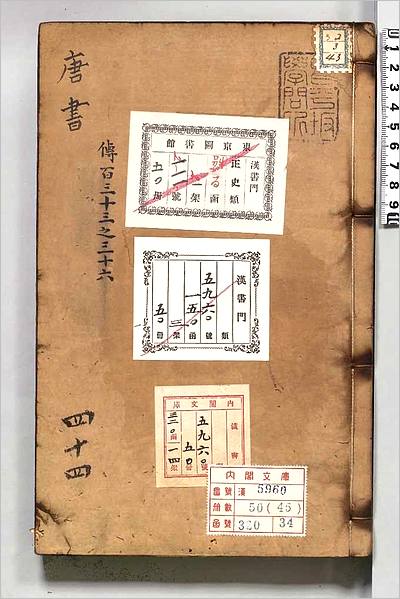 唐書
傳百三十三之三十六
四十四
東京圖書館
漢書門
正史類
る函
一架
二一號
五〇冊
漢書門
類
五九六〇號
一五〇函
三架
五〇冊
内閣文庫
漢書
五九六〇號
五〇冊
三二〇函
一四架
内閣文庫
番號 漢 5960
冊數 50(45)
函號 320 34
3
43
1 2 3 4 5 6 7 8 9